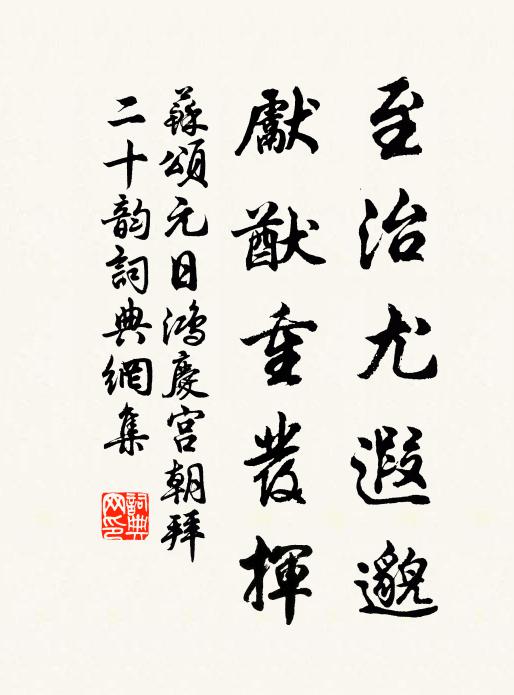 至治尤遐邈
獻猷重發揮
蘇頌元日鴻慶宮朝拜
二十韵詞典網集
詞典网印